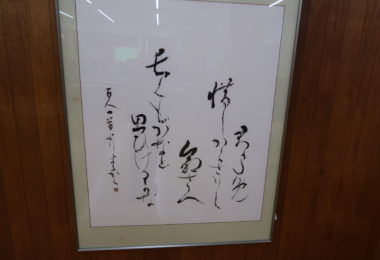 君かため
惜しからさりし
命さへ
長くもがなと
思ひけるかな
百人一首